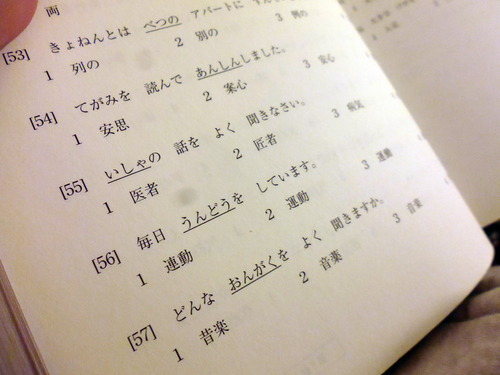 両
[53] きょねんとは べつの アパートに
1 列の 2 別の 3
[54] てがみを 読んで あんしんしました。
1 安思 2 案心 3 安心
[55] いしゃの 話を よく 聞きなさい。
1 医者 2 匠者 3 病気
[56] 毎日 うんどうを しています。
1 連動 2 運動 3 運動
[57] どんな おんがくを よく 聞きますか。
1 昔楽 2 音薬 3 音楽